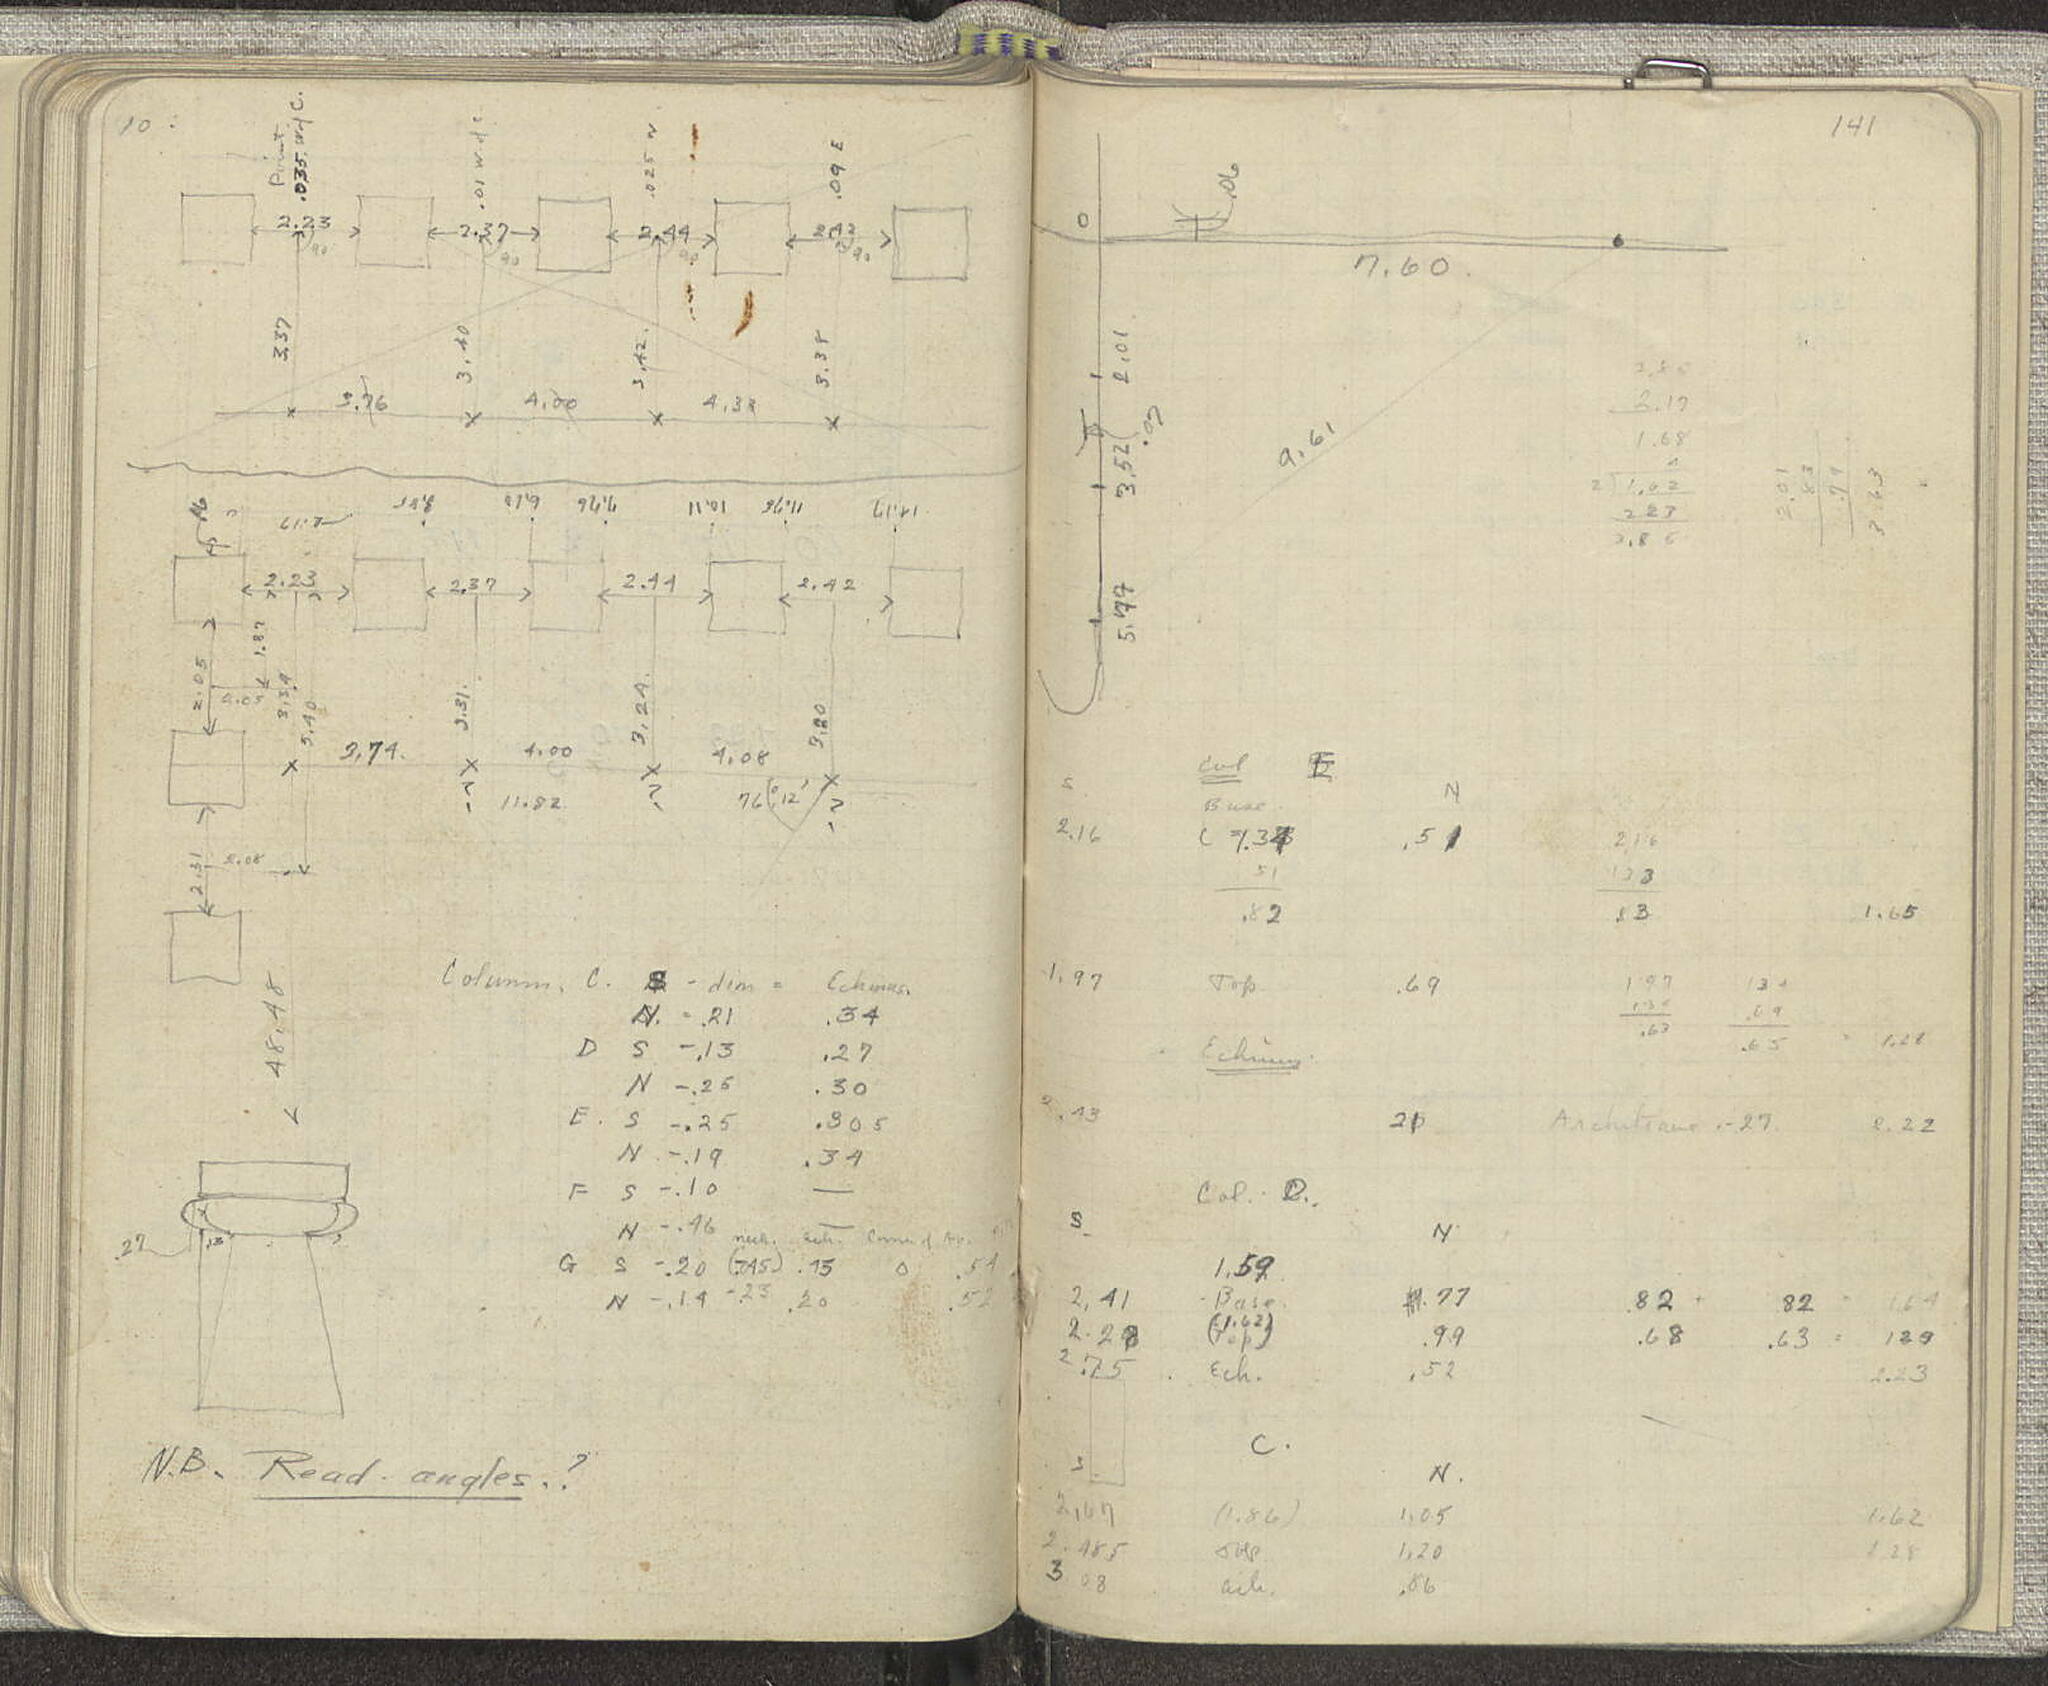 10
Point
.035 W of C.
.01 W of C
.025 W
.09 E
2.23
2.37
2.44
2.42
90
90
90
90
3.37
3.40
3.42.
3.38
3.76
4.00
4.33
2.17
7.76
10.11
11.78
14.17
2.23
2.37
2.44
2.42
1.87
2.05
3.34
3.40
3.31.
3.24.
3.20
3.74.
4.00
4.08
11.82
76° 12'
2.31
2.08
48.48
Column. C. S - dim = Echinus.
N. = .21 .34
D S -.13 .27
N -.25 .30
E. S -.25 .305
N -.19 .34
F S -.10 —
N -.46 —
neck. ech.
G S -.20 (.745) .15 0 .54
N -.14 -.23 .20 .52
.27
.13
N.B. Read angles.?
141
0
.06
7.60.
2.01
.07
3.52
9.61
5.77
2.17
1.68
2.01
83
.79
3.63
Col E
S N
Base
2.16 .51 2.16
51 133
.82 .83 1.65
1.97 Top .69 1.97
.63 .65 = 1.28
Echinus.
21 Architrave -.27 2.22
Col. D.
S N
1.59
2.41 Base .77 .82 + 82 = 1.64
(1.62)
(Top) .99 .68 .63 =
2.75 Ech. .52 2.23
C.
S N.
2.67 (1.86) 1.05 1.62
2.485 Top 1.20 1.28
3.08 ech. .86